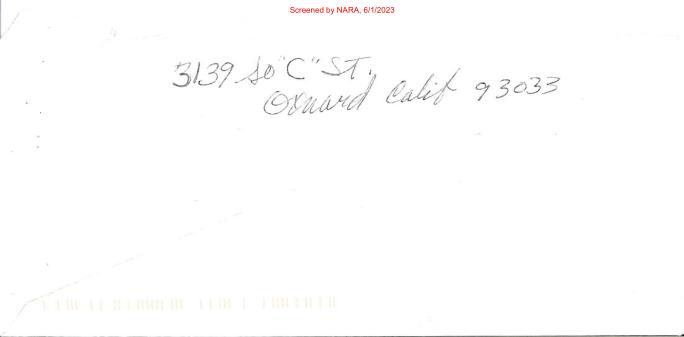 Screened by NARA, 6/1/2023
3139 So "C" St.
Oxnard Calif 93033